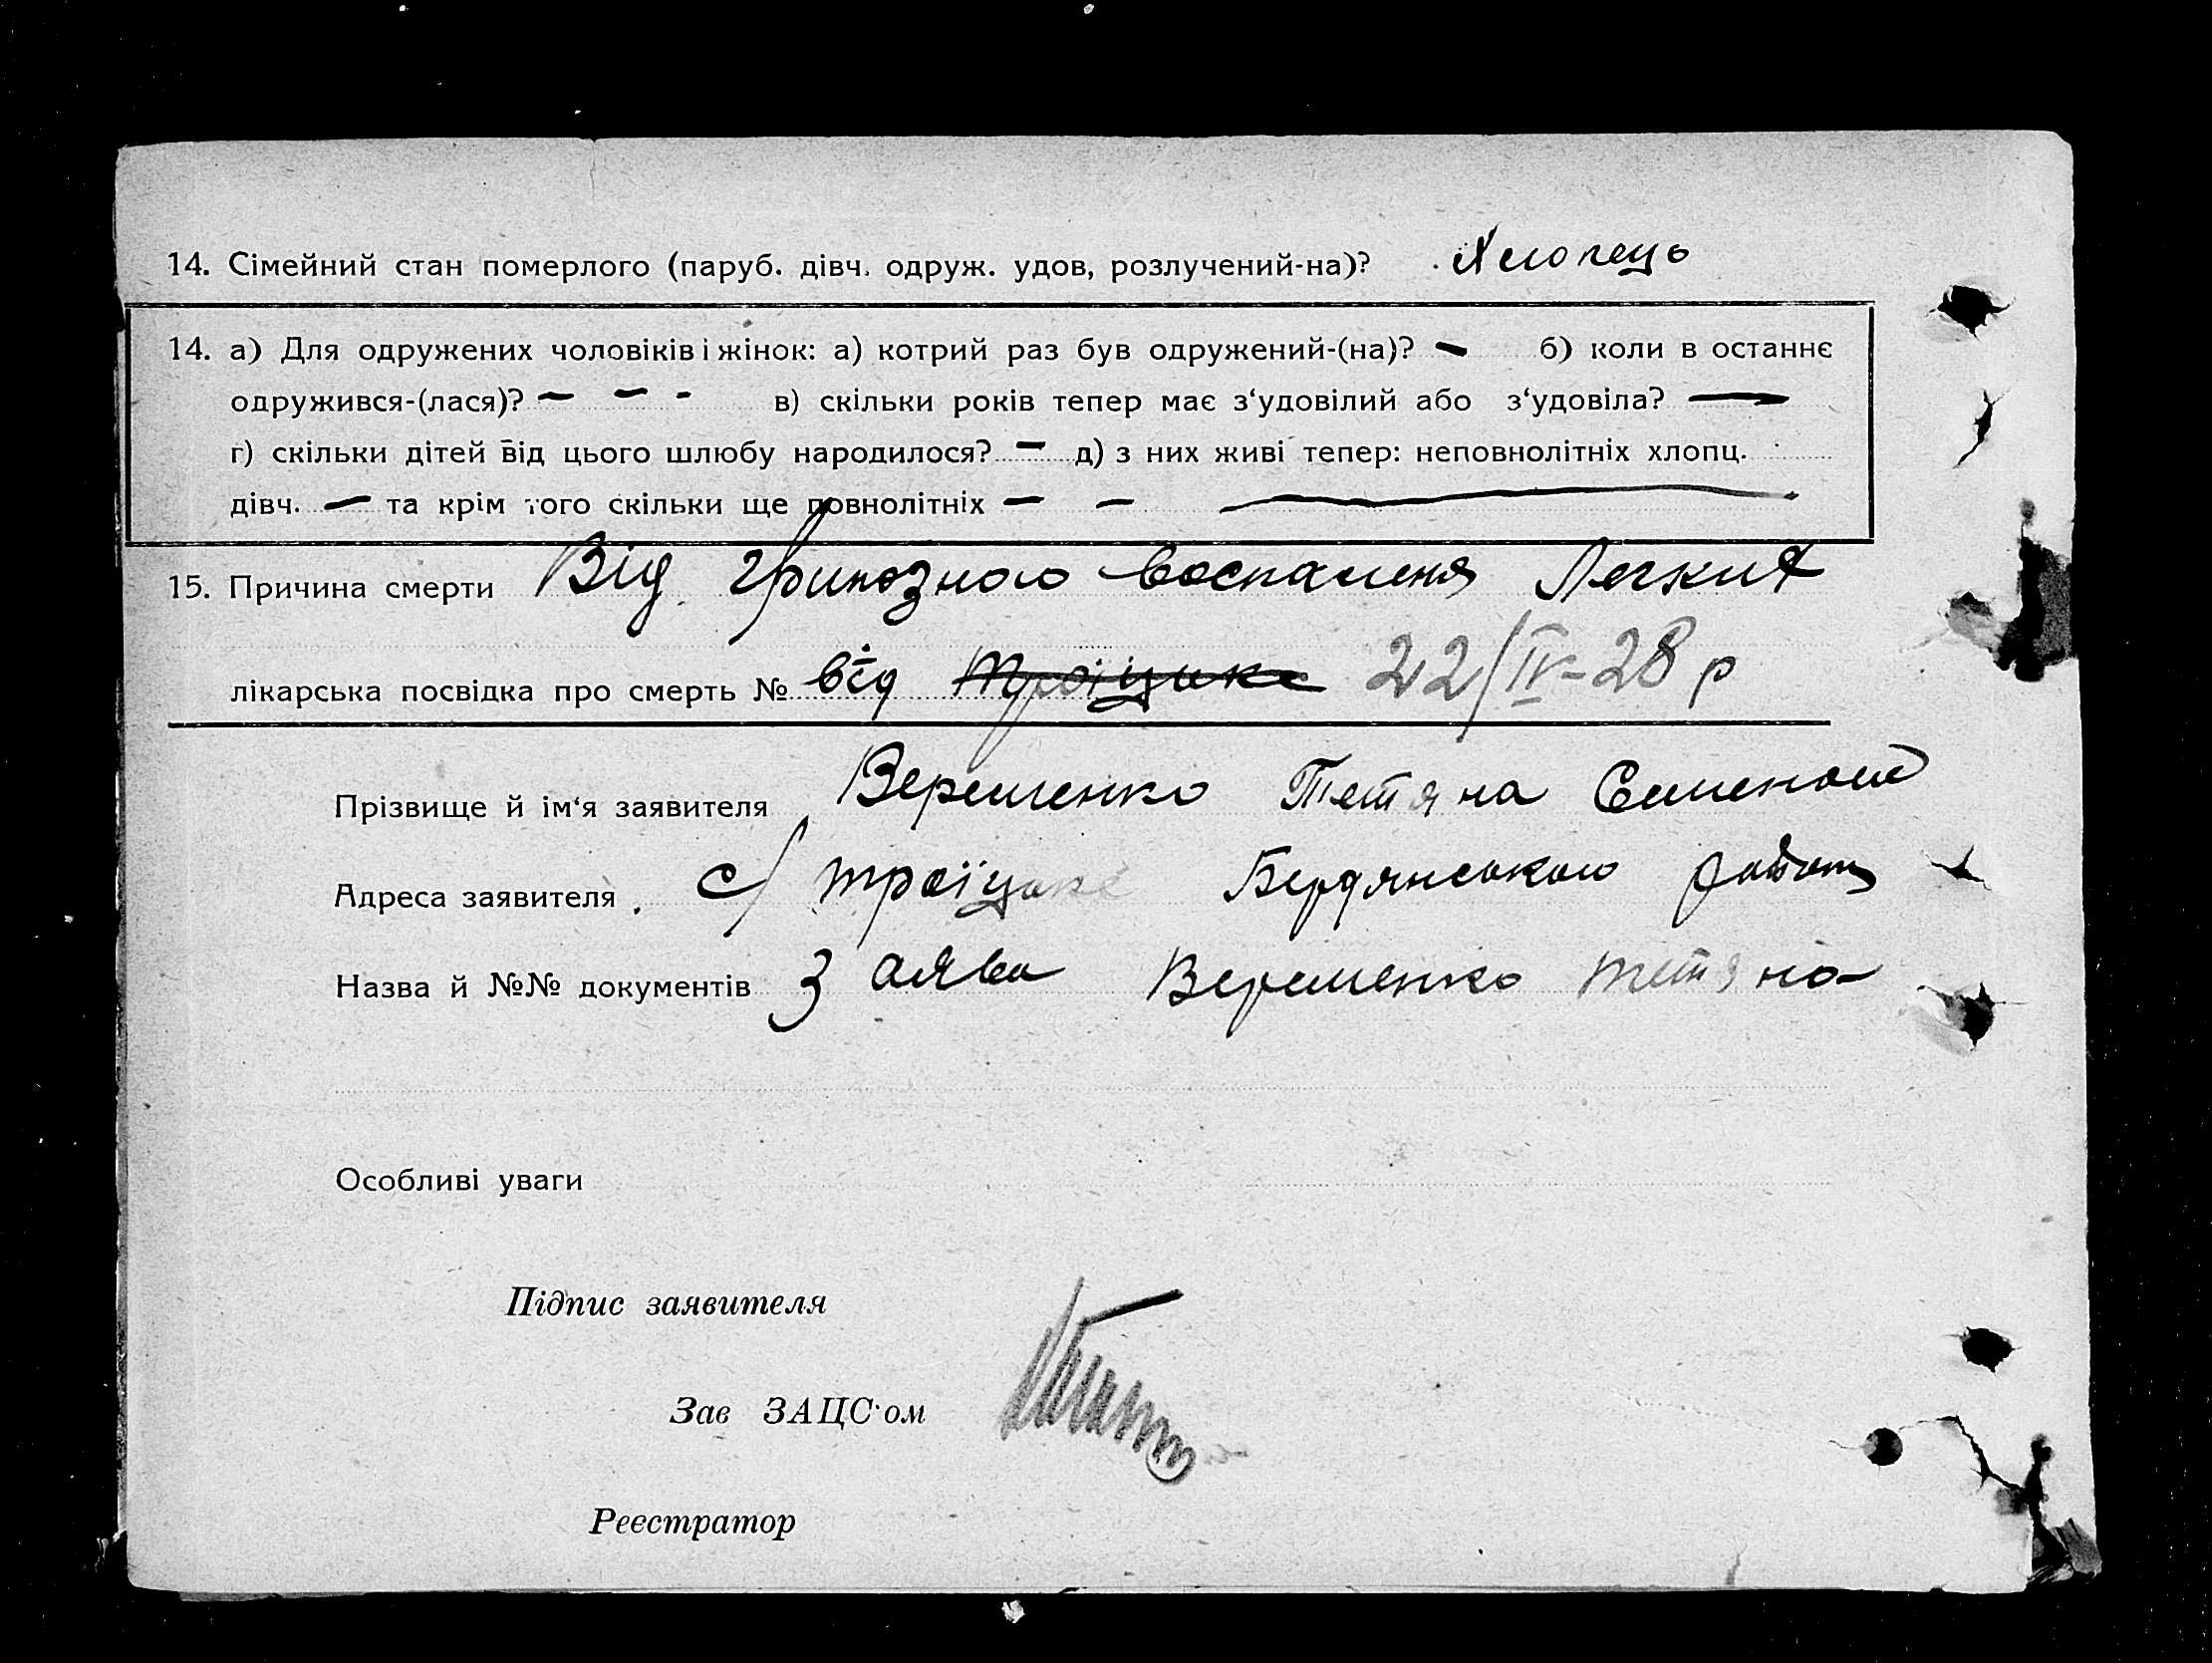 14. Сімейний стан померлого (паруб. дівч. одруж. удов, розлучений-на)? Хлопець
14. а) Для одружених чоловіків і жінок: а) котрий раз був одружений-(на)? — б) коли в останнє
одружився-(лася)? — — - в) скільки років тепер має з‘удовілий або з‘удовіла? —
г) скільки дітей від цього шлюбу народилося? — д) з них живі тепер: неповнолітніх хлопц.
дівч. — та крім того скільки ще повнолітніх — — —
15. Причина смерти Від грипозного воспаленя Легких
лікарська посвідка про смерть № від Троіцьке 22/IV-28 р
Прізвище й ім‘я заявителя Веременко Тетяна
Адреса заявителя с/ Троїцьке Бердянського
Назва й №№ документів Заява Веременко Тетяна
Особливі уваги
Підпис заявителя
Зав ЗАЦС‘ом
Реєстратор